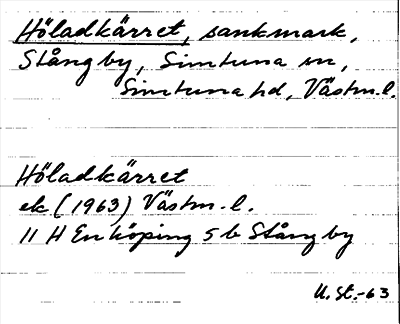 Höladkärret, sankmark,
Stångby, Simtuna sn,
Simtuna hd, Västm. l.
Höladkärret
ek (1963) Västm. l.
11 H Enköping 5 b Stångby
U. St. -63